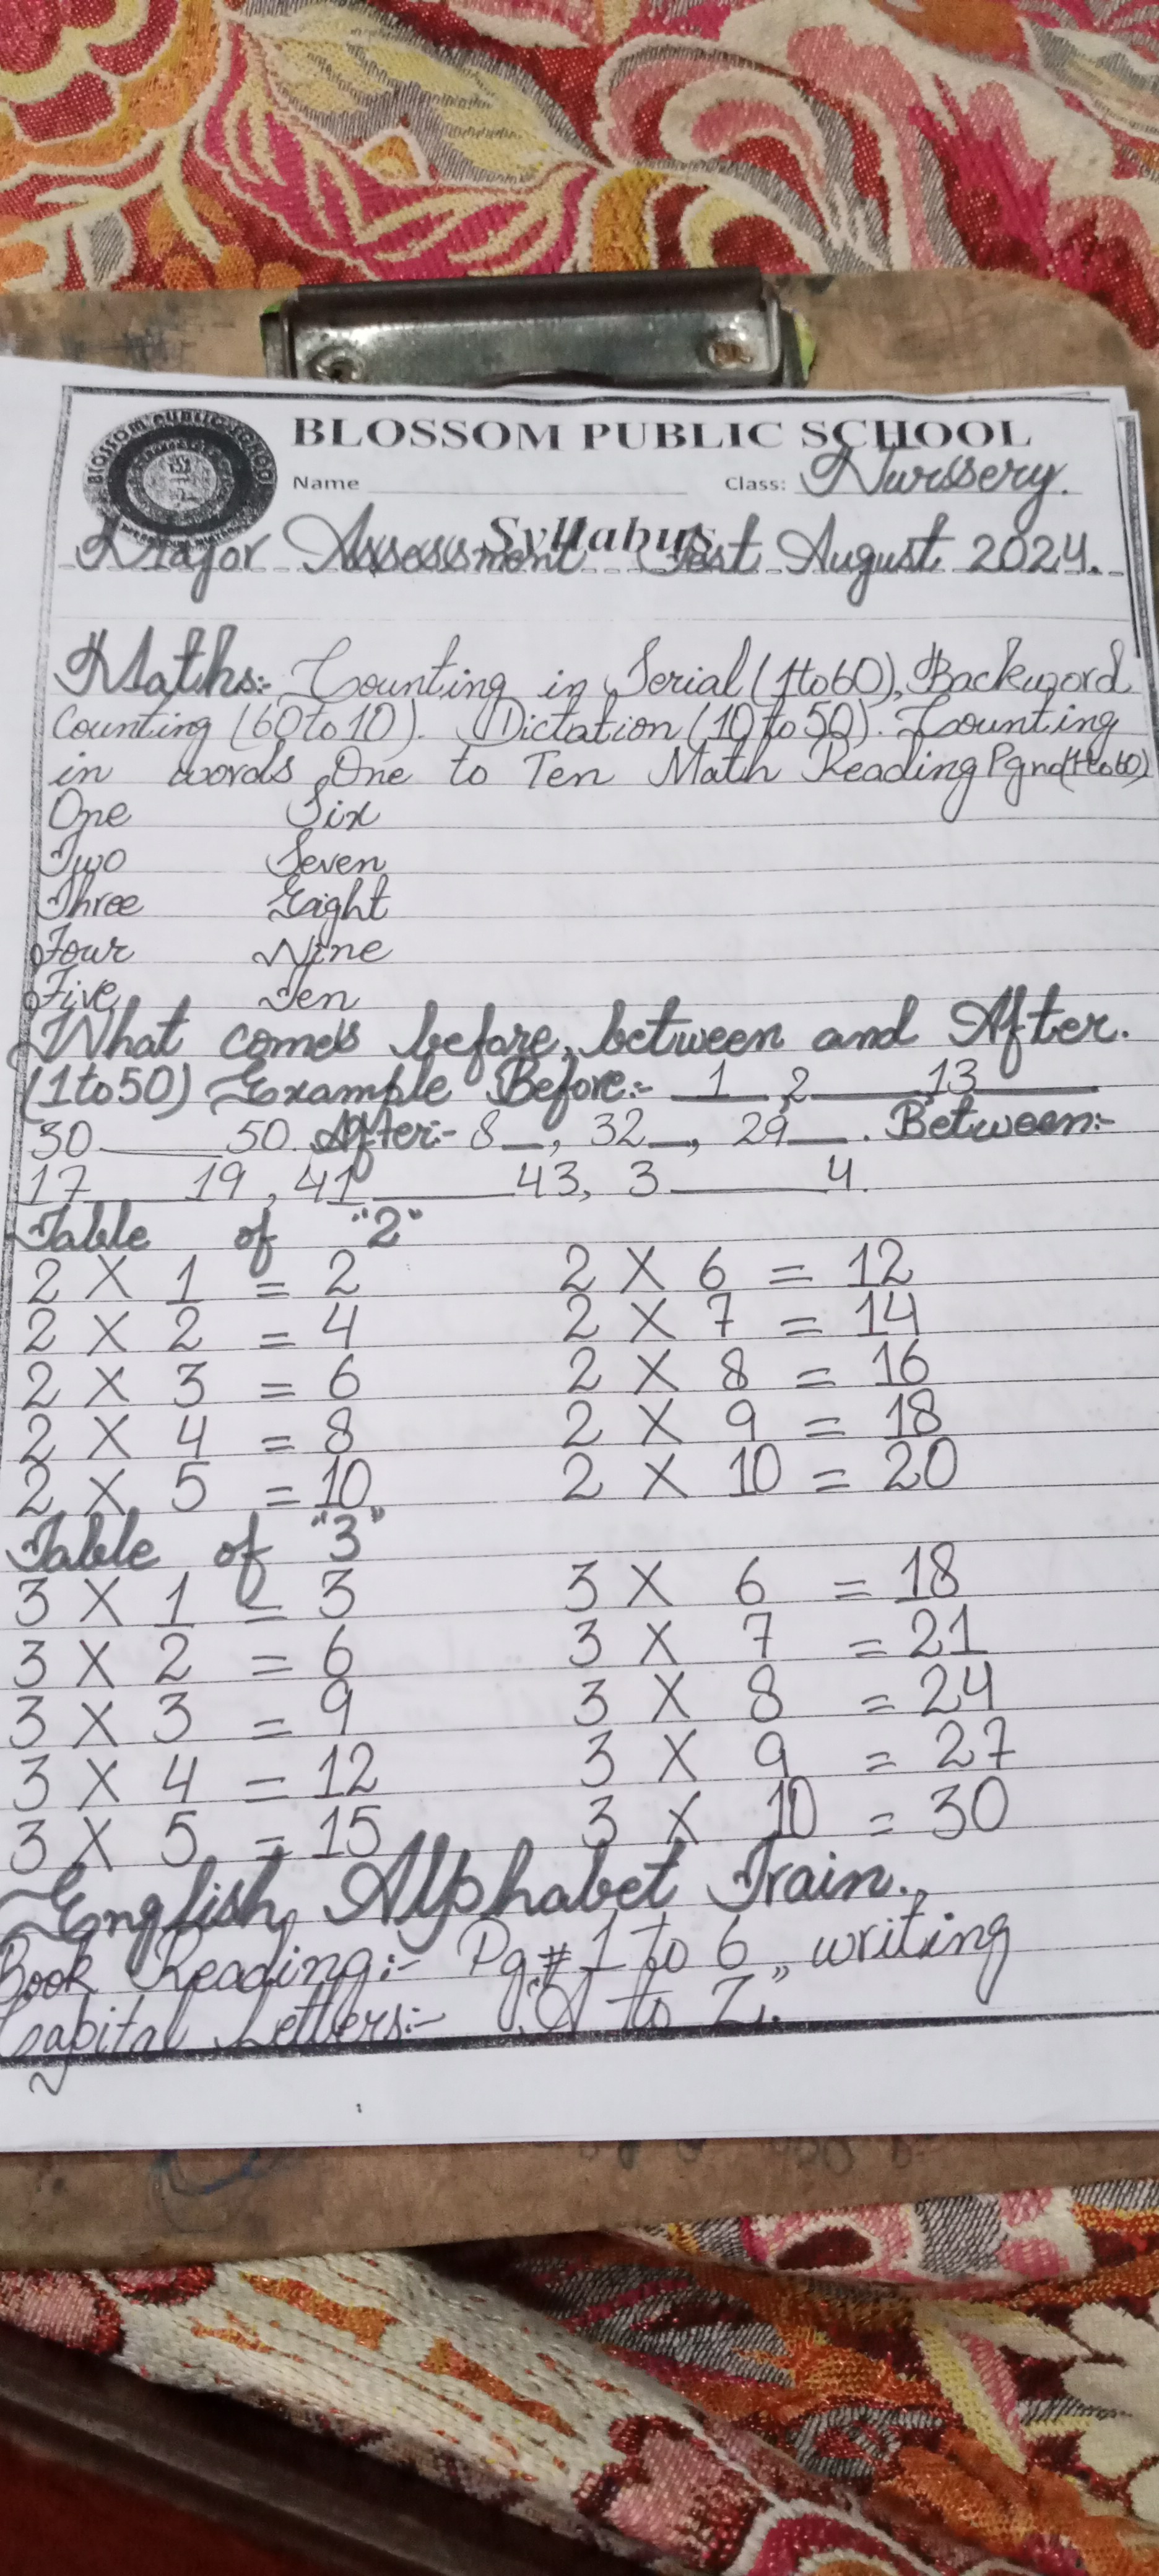 BLOSSOM PUBLIC SCHOOL
BLOSSOM PUBLIC SCHOOL
Name Class: Nurssery.
Syllabus
Major Assessment Test August 2024.
Maths:- Counting in Serial (1to60), Backword
Counting (60to10). Dictation (10 to 50). Counting
in words One to Ten Math Reading Pgno(1to60)
One Six
Two Seven
Three Eight
Four Nine
Five Ten
What comes before, between and After.
(1to50) Example Before:- 1, 2 13
30 50. After:- 8, 32, 29. Between:-
17 19, 41 43, 3 4.
Table of "2"
2 X 1 = 2 2 X 6 = 12
2 X 2 = 4 2 X 7 = 14
2 X 3 = 6 2 X 8 = 16
2 X 4 = 8 2 X 9 = 18
2 X 5 = 10 2 X 10 = 20
Table of "3"
3 X 1 = 3 3 X 6 = 18
3 X 2 = 6 3 X 7 = 21
3 X 3 = 9 3 X 8 = 24
3 X 4 = 12 3 X 9 = 27
3 X 5 = 15 3 X 10 = 30
English, Alphabet Train.
Book Reading:- Pg# 1 to 6, writing
Capital Letters:- "A to Z."